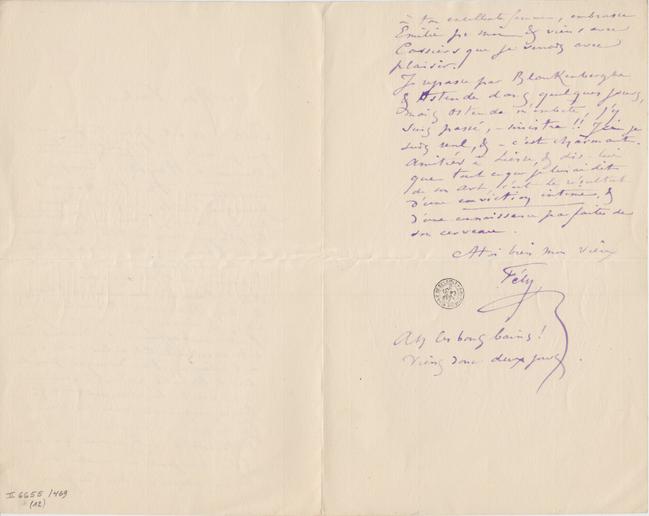 à ton excellente femme, embrasse
Emilie pr moi & viens avec
Cassiers que je verrais avec
plaisir.
Je repasse par Blankenberghe
& Ostende dans quelques jours,
mais Ostende m'embête, j'y
suis passé, – sinistre!! Ici je
suis seul, & – c'est charmant.
Amitiés à Liesse, & dis-lui
que tout ce que je lui ai dit
de son art, c'est le résultat
d'une conviction intime, &
d'une connaissance parfaite de
son cerveau.
A toi bien mon vieux
Fély
Ah les bons bains!
Viens donc deux jours.
II 6655 /469
(12)